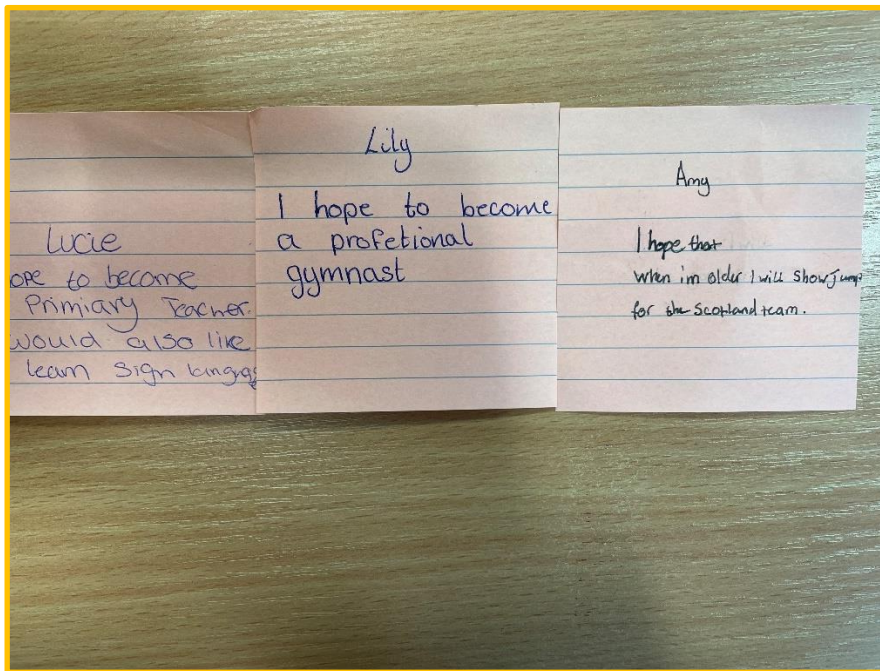 Lucie
ope to become
Primiary Teacher.
would also like
learn sign
Lily
I hope to become
a profetional
gymnast
Amy
I hope that
when im older I will show jump
for the Scotland team.